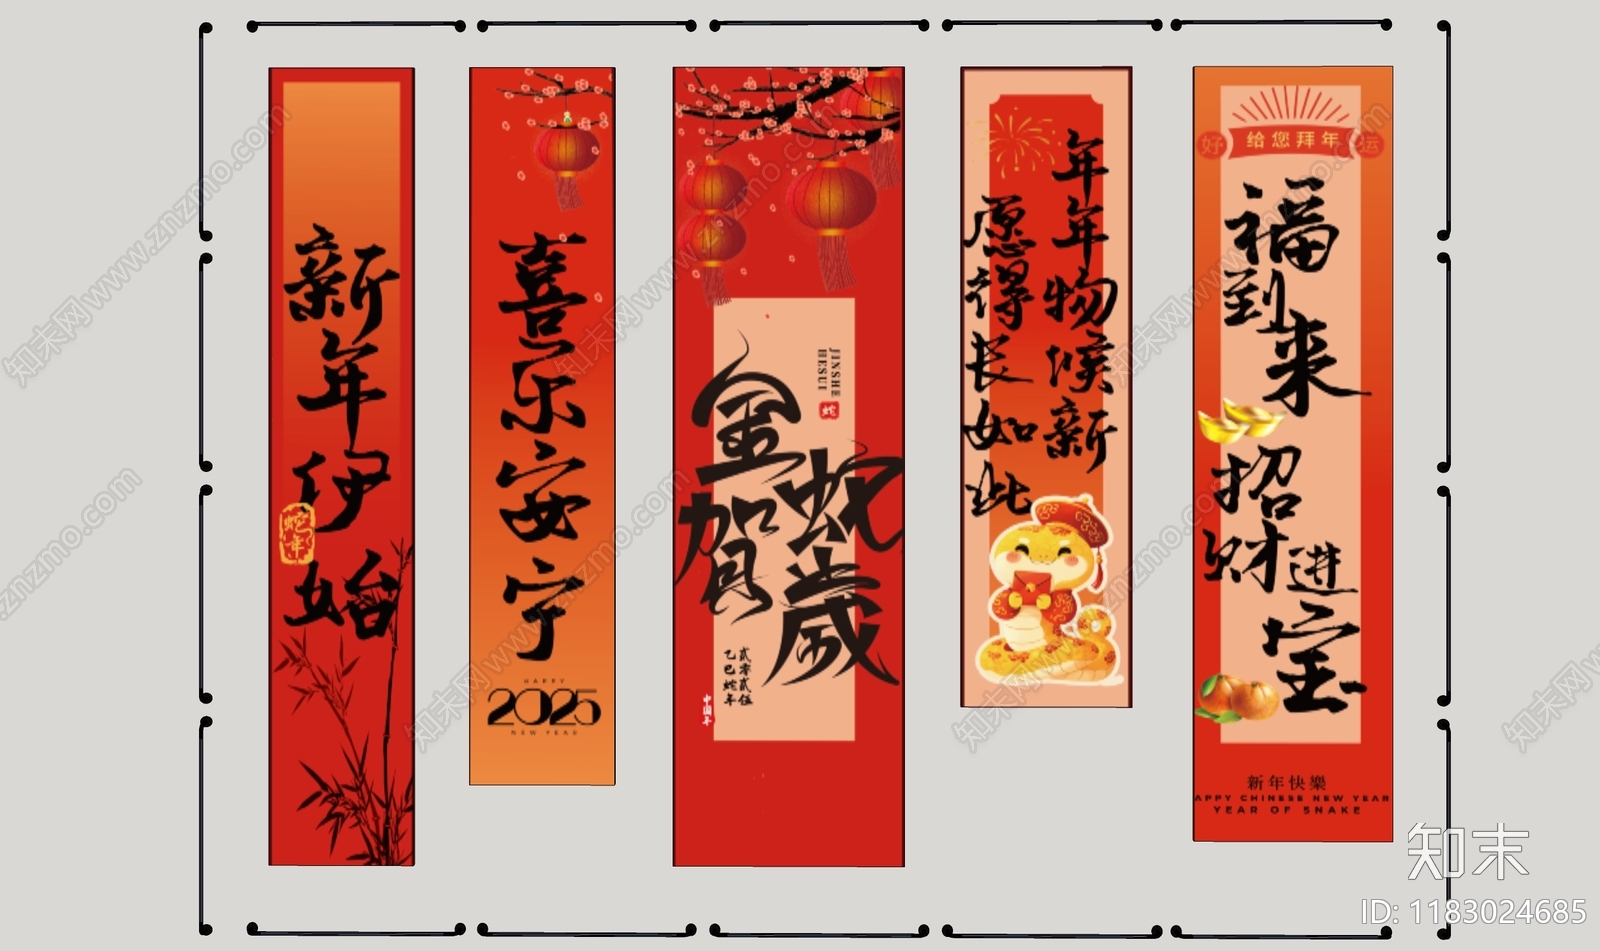 新年伊始
蛇年
喜乐安宁
HAPPY
2025
NEW YEAR
JINSHE
HESUI
蛇
金蛇
賀歲
贰零贰伍
乙巳蛇年
中国年
年年物候新
愿得长如此
好
给您拜年
运
福到来
招财进宝
新年快樂
APPY CHINESE NEW YEAR
YEAR OF SNAKE
知末
ID: 1183024685
知末网www.znzmo.com